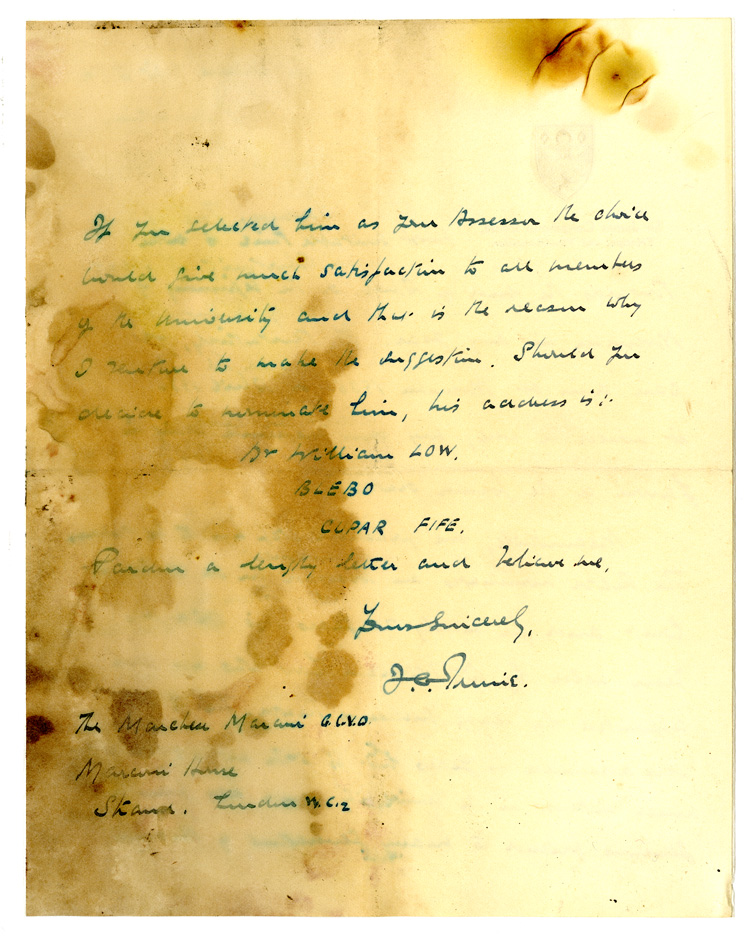 If you selected him as your Assessor the choice
would give much satisfaction to all members
of the University and that is the reason why
I venture to make the suggestion. Should you
decide to nominate him, his address is:-
Dr William LOW.
BLEBO
CUPAR FIFE.
Pardon a lengthy letter and believe me,
Yours sincerely,
J.C.
The Marchese Marconi G.C.V.O
Marconi House
Strand. London W.C.2